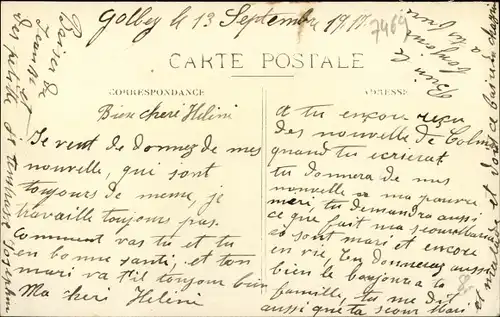 Golbey le 13 Septembre 1917
7464
CARTE POSTALE
CORRESPONDANCE
ADRESSE
Bien cheri Héléni
Je vent de donnez de mes
nouvelle, qui sont
toujours de meme, je
travaille toujours pas.
Comment vas tu et tu
en bonne santi, et ton
mari va t'il toujour bien
Ma cheri Héléni
a tu encore reçu
des nouvelle de Colmar
quand tu ecrierat
tu donnera de mes
nouvelle a ma pauvre
meri, tu demandra aussi
ce que fait ma
si sont mari et encore
en vie, tu donnerat aussi
bien le bonjour a ta
famille, tu me dit
aussi que ta sœur etait
et malade et
Bien le
bonjour
a ta
Baiser de
Jeanne
et
des petite
et